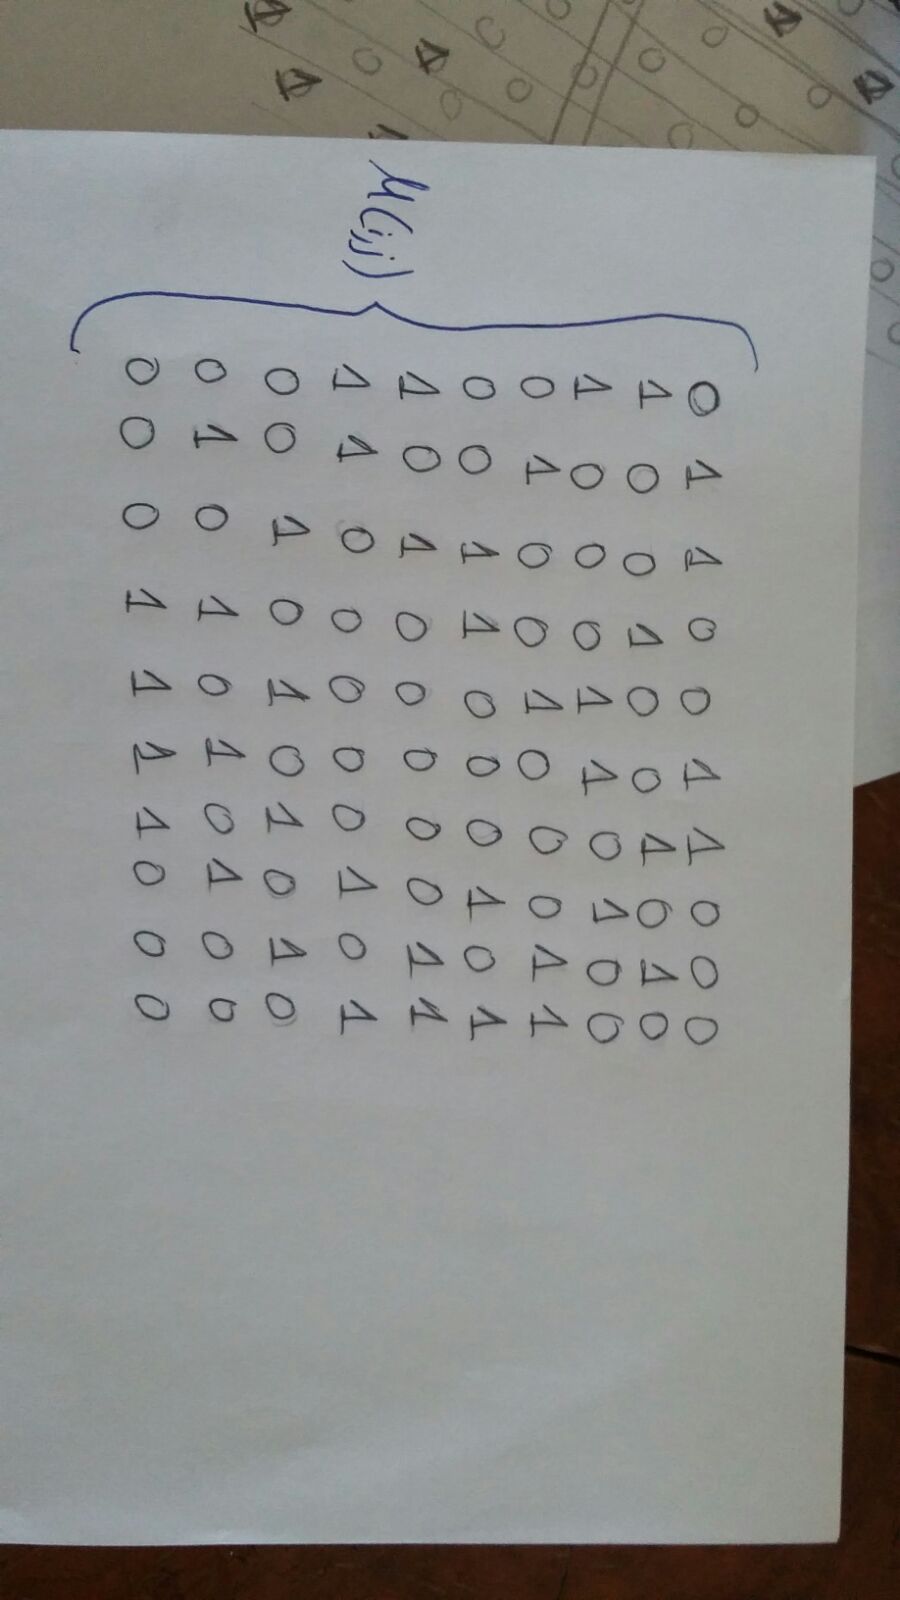 0 1 1 0 0 1 1 0 0 0
1 0 0 1 0 0 1 0 1 0
1 0 0 0 1 1 0 1 0 0
0 1 0 0 1 0 0 0 1 1
0 0 1 1 0 0 0 1 0 1
M(i,j)
1 0 1 0 0 0 0 0 1 1
1 1 0 0 0 0 0 1 0 1
0 0 1 0 1 0 1 0 1 0
0 1 0 1 0 1 0 1 0 0
0 0 0 1 1 1 1 0 0 0